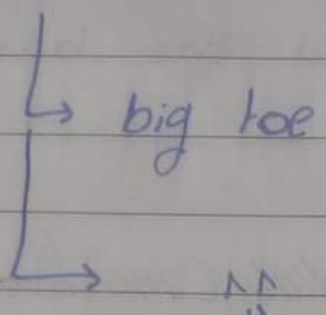 big toe